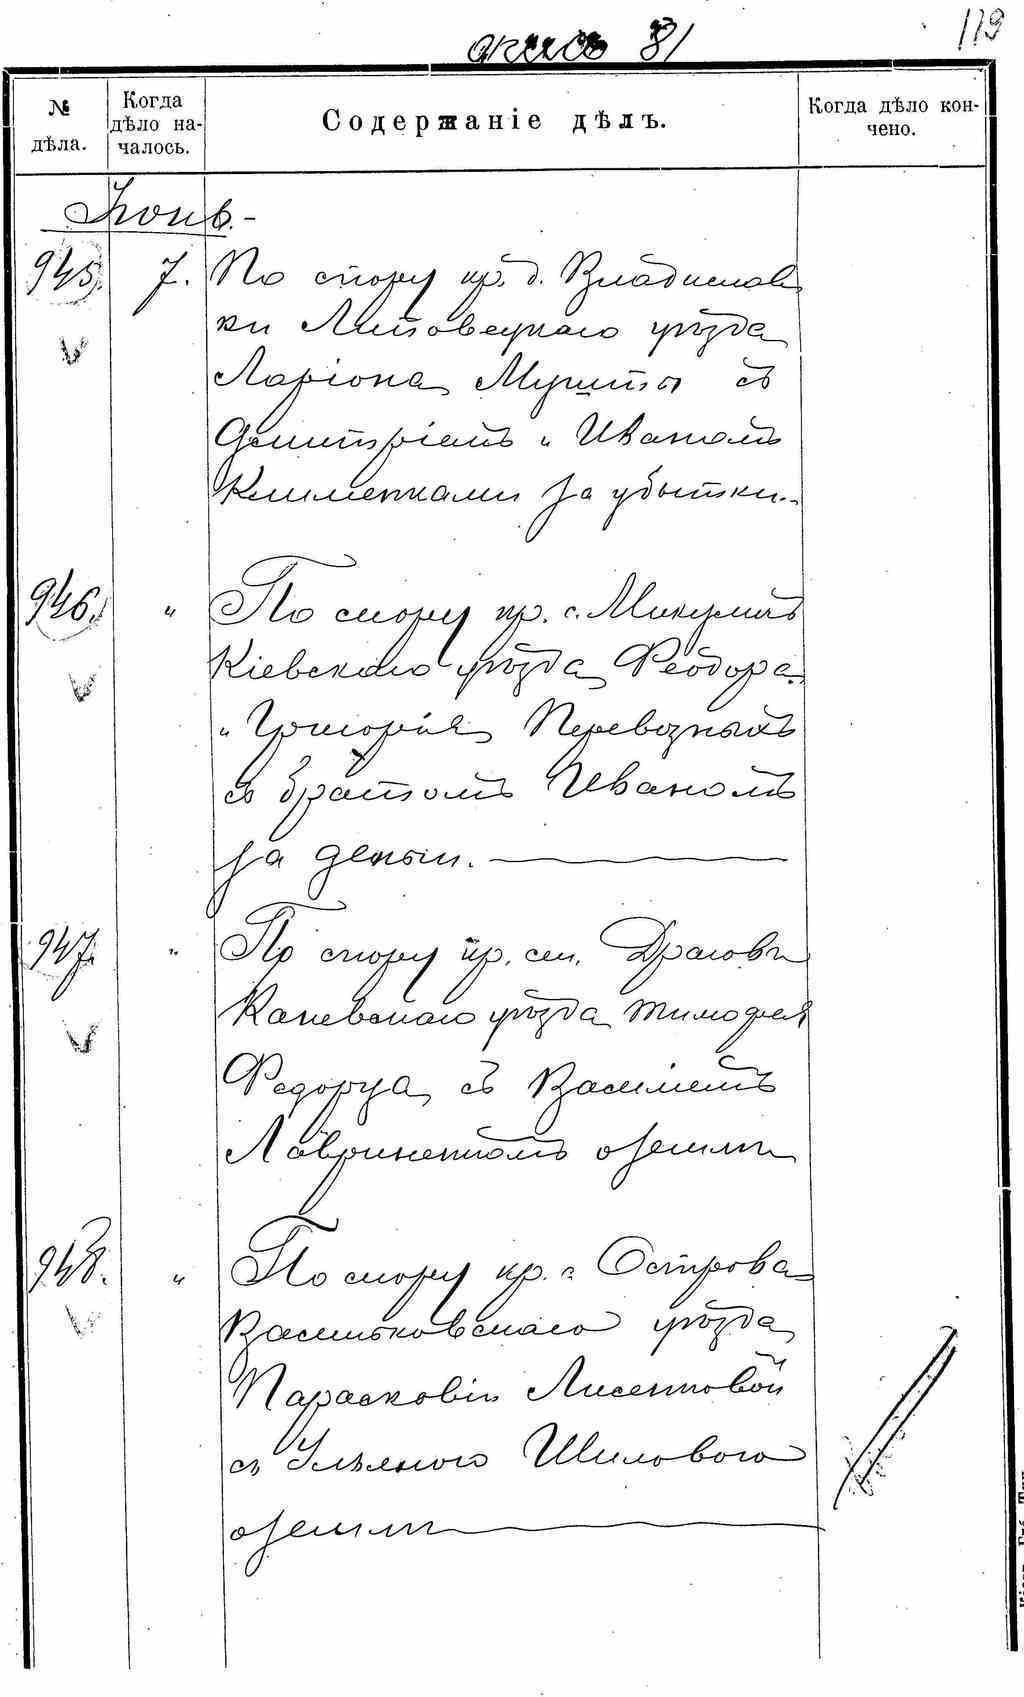 опись 81
119
№ дѣла.
Когда дѣло началось.
Содержаніе дѣлъ.
Когда дѣло кончено.
Іюнь.
945. 7. По спору кр. д. Владислав
ки Липовецкаго уѣзда
Ларіона Мушты съ
Дмитріемъ и Иваномъ
Клименками за убытки.
946. " По спору кр. с. Микуличъ
Кіевскаго уѣзда Феодора
и Григорія Перевозныхъ
съ братомъ Иваномъ
за деньги.
947. " По спору кр. сел.
Каневскаго уѣзда Тимофея
съ Василіемъ
Лавриненкомъ о земли
948. " По спору кр. с. Острова
Васильковскаго уѣзда
Парасковіи Лисенковой
съ Ульяною Шиловою
о земли